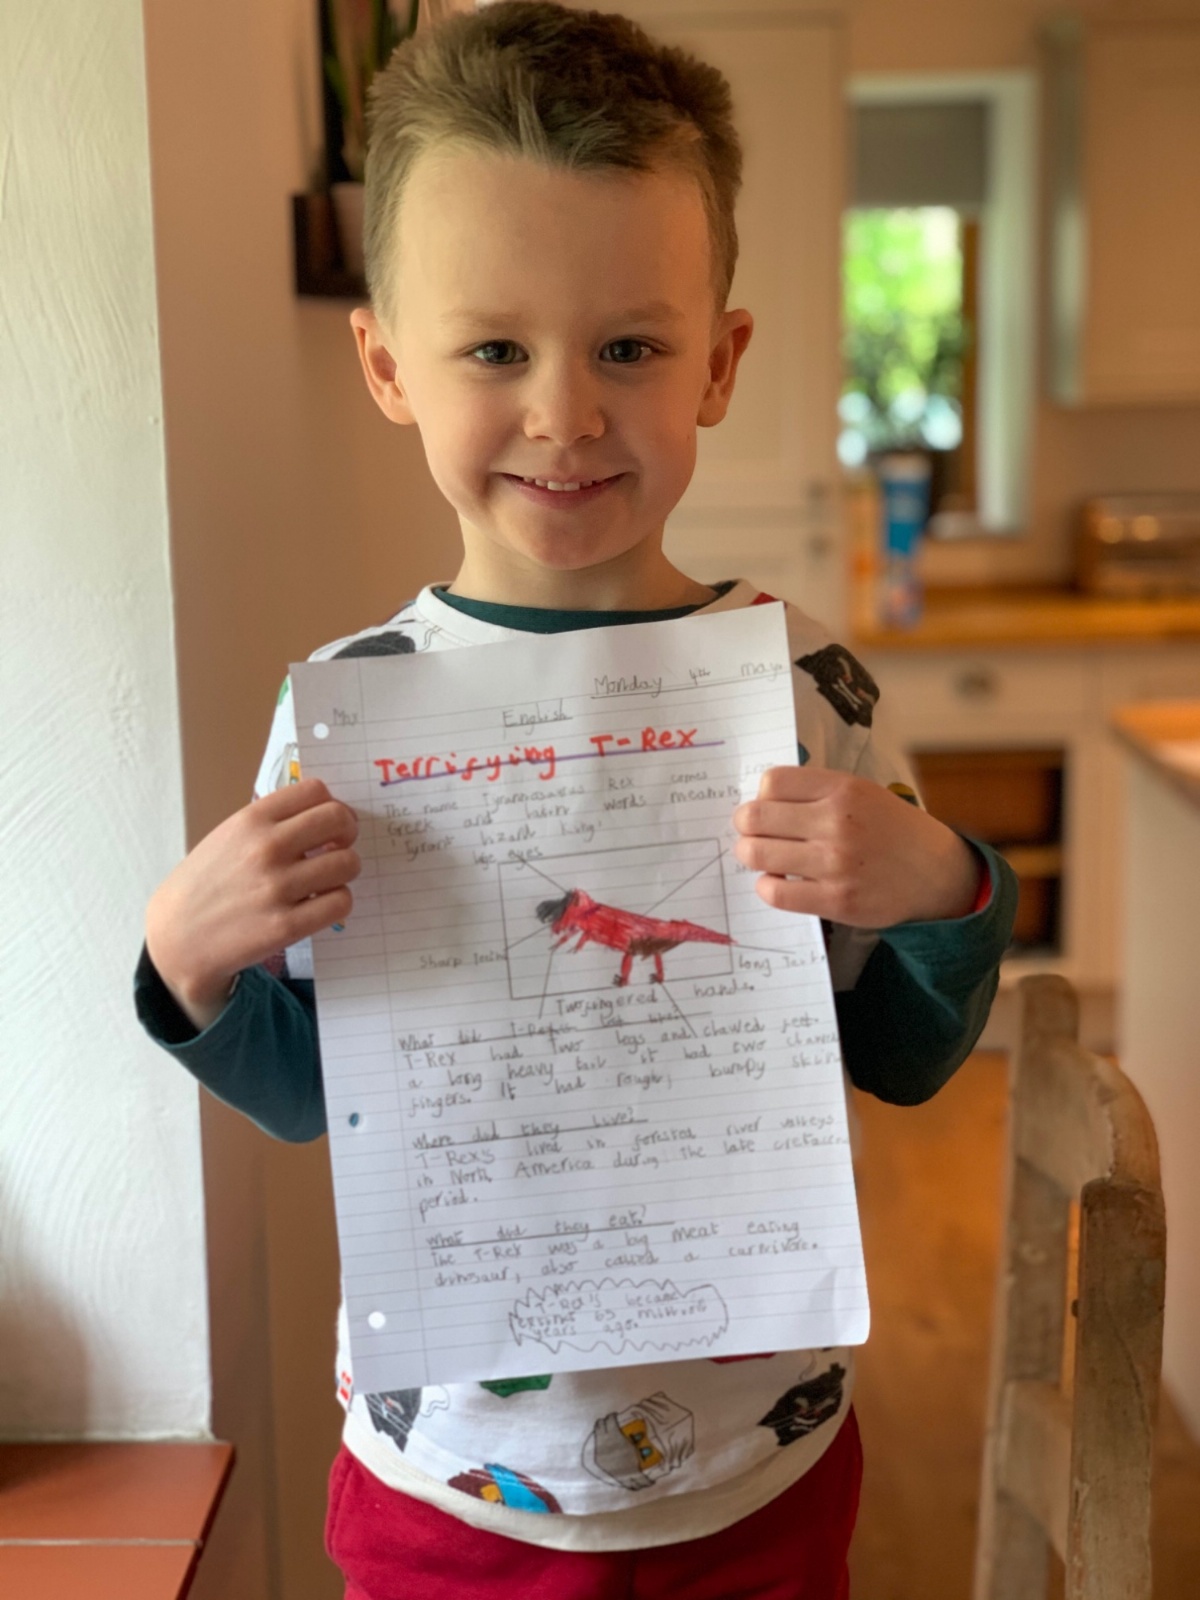 Monday 4th May.
Max
English
Terrifying T-Rex
The name Tyrannosaurus Rex comes
Greek and Latin words meaning
'Tyrant lizard king'
eyes
Sharp
long
Two fingered hands.
What did T-Rex
T-Rex had two legs and clawed feet.
a long heavy tail it had two clawed
fingers. It had rough, bumpy skin
Where did they live?
T-Rex's lived in forested river valleys
in North America during the late cretaceous
period.
What did they eat?
The T-Rex was a big meat eating
dinosaur, also called a carnivore.
T-Rex's became
65 millions
years ago.